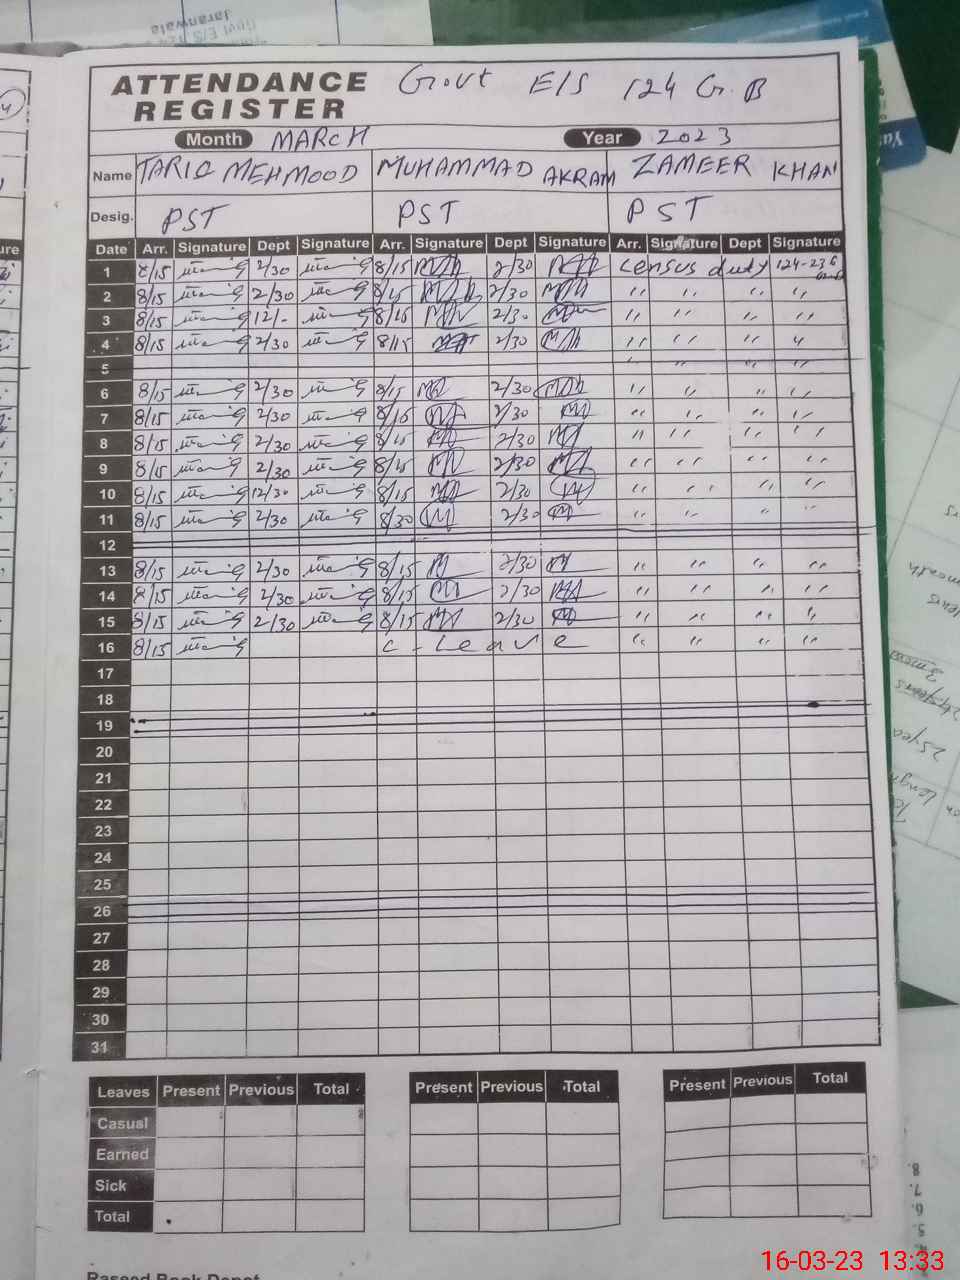 ATTENDANCE REGISTER Govt E/S 124 G.B
Month MARCH Year 2023
Name TARIQ MEHMOOD MUHAMMAD AKRAM ZAMEER KHAN
Desig. PST PST PST
Date Arr. Signature Dept Signature Arr. Signature Dept Signature Arr. Signature Dept Signature
1 8/15 2/30 8/15 2/30 Census duty
2 8/15 2/30 8/15 2/30 " " " "
3 8/15 12/- 8/15 2/30 " " " "
4 8/15 2/30 8/15 2/30 " " "
5 " " " "
6 8/15 2/30 8/15 2/30 " " " "
7 8/15 2/30 8/15 2/30 " " " "
8 8/15 2/30 8/15 2/30 " " " "
9 8/15 2/30 8/15 2/30 " " " "
10 8/15 12/30 8/15 2/30 " " " "
11 8/15 2/30 8/30 2/30 " " " "
12
13 8/15 2/30 8/15 2/30 " " " "
14 8/15 2/30 8/15 2/30 " " " "
15 8/15 2/30 8/15 2/30 " " " "
16 8/15 C-Leave " " " "
17
18
19
20
21
22
23
24
25
26
27
28
29
30
31
Leaves Present Previous Total Present Previous Total Present Previous Total
Casual
Earned
Sick
Total
16-03-23 13:33